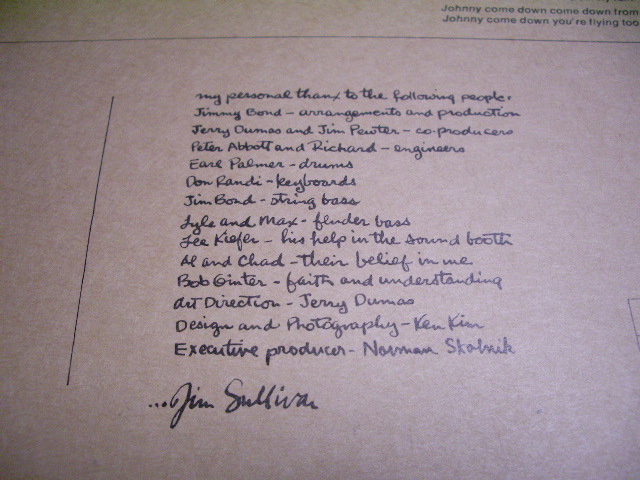 Johnny come down come down from
Johnny come down you're flying too
my personal thanx to the following people:
Jimmy Bond – arrangements and production
Jerry Dumas and Jim Pewter – co-producers
Peter Abbott and Richard – engineers
Earl Palmer – drums
Don Randi – keyboards
Jim Bond – string bass
Lyle and Max – fender bass
Lee Kiefer – his help in the sound booth
Al and Chad – their belief in me
Bob Ginter – faith and understanding
Art Direction – Jerry Dumas
Design and Photography – Ken Kim
Executive producer – Norman Skolnik
...Jim Sullivan